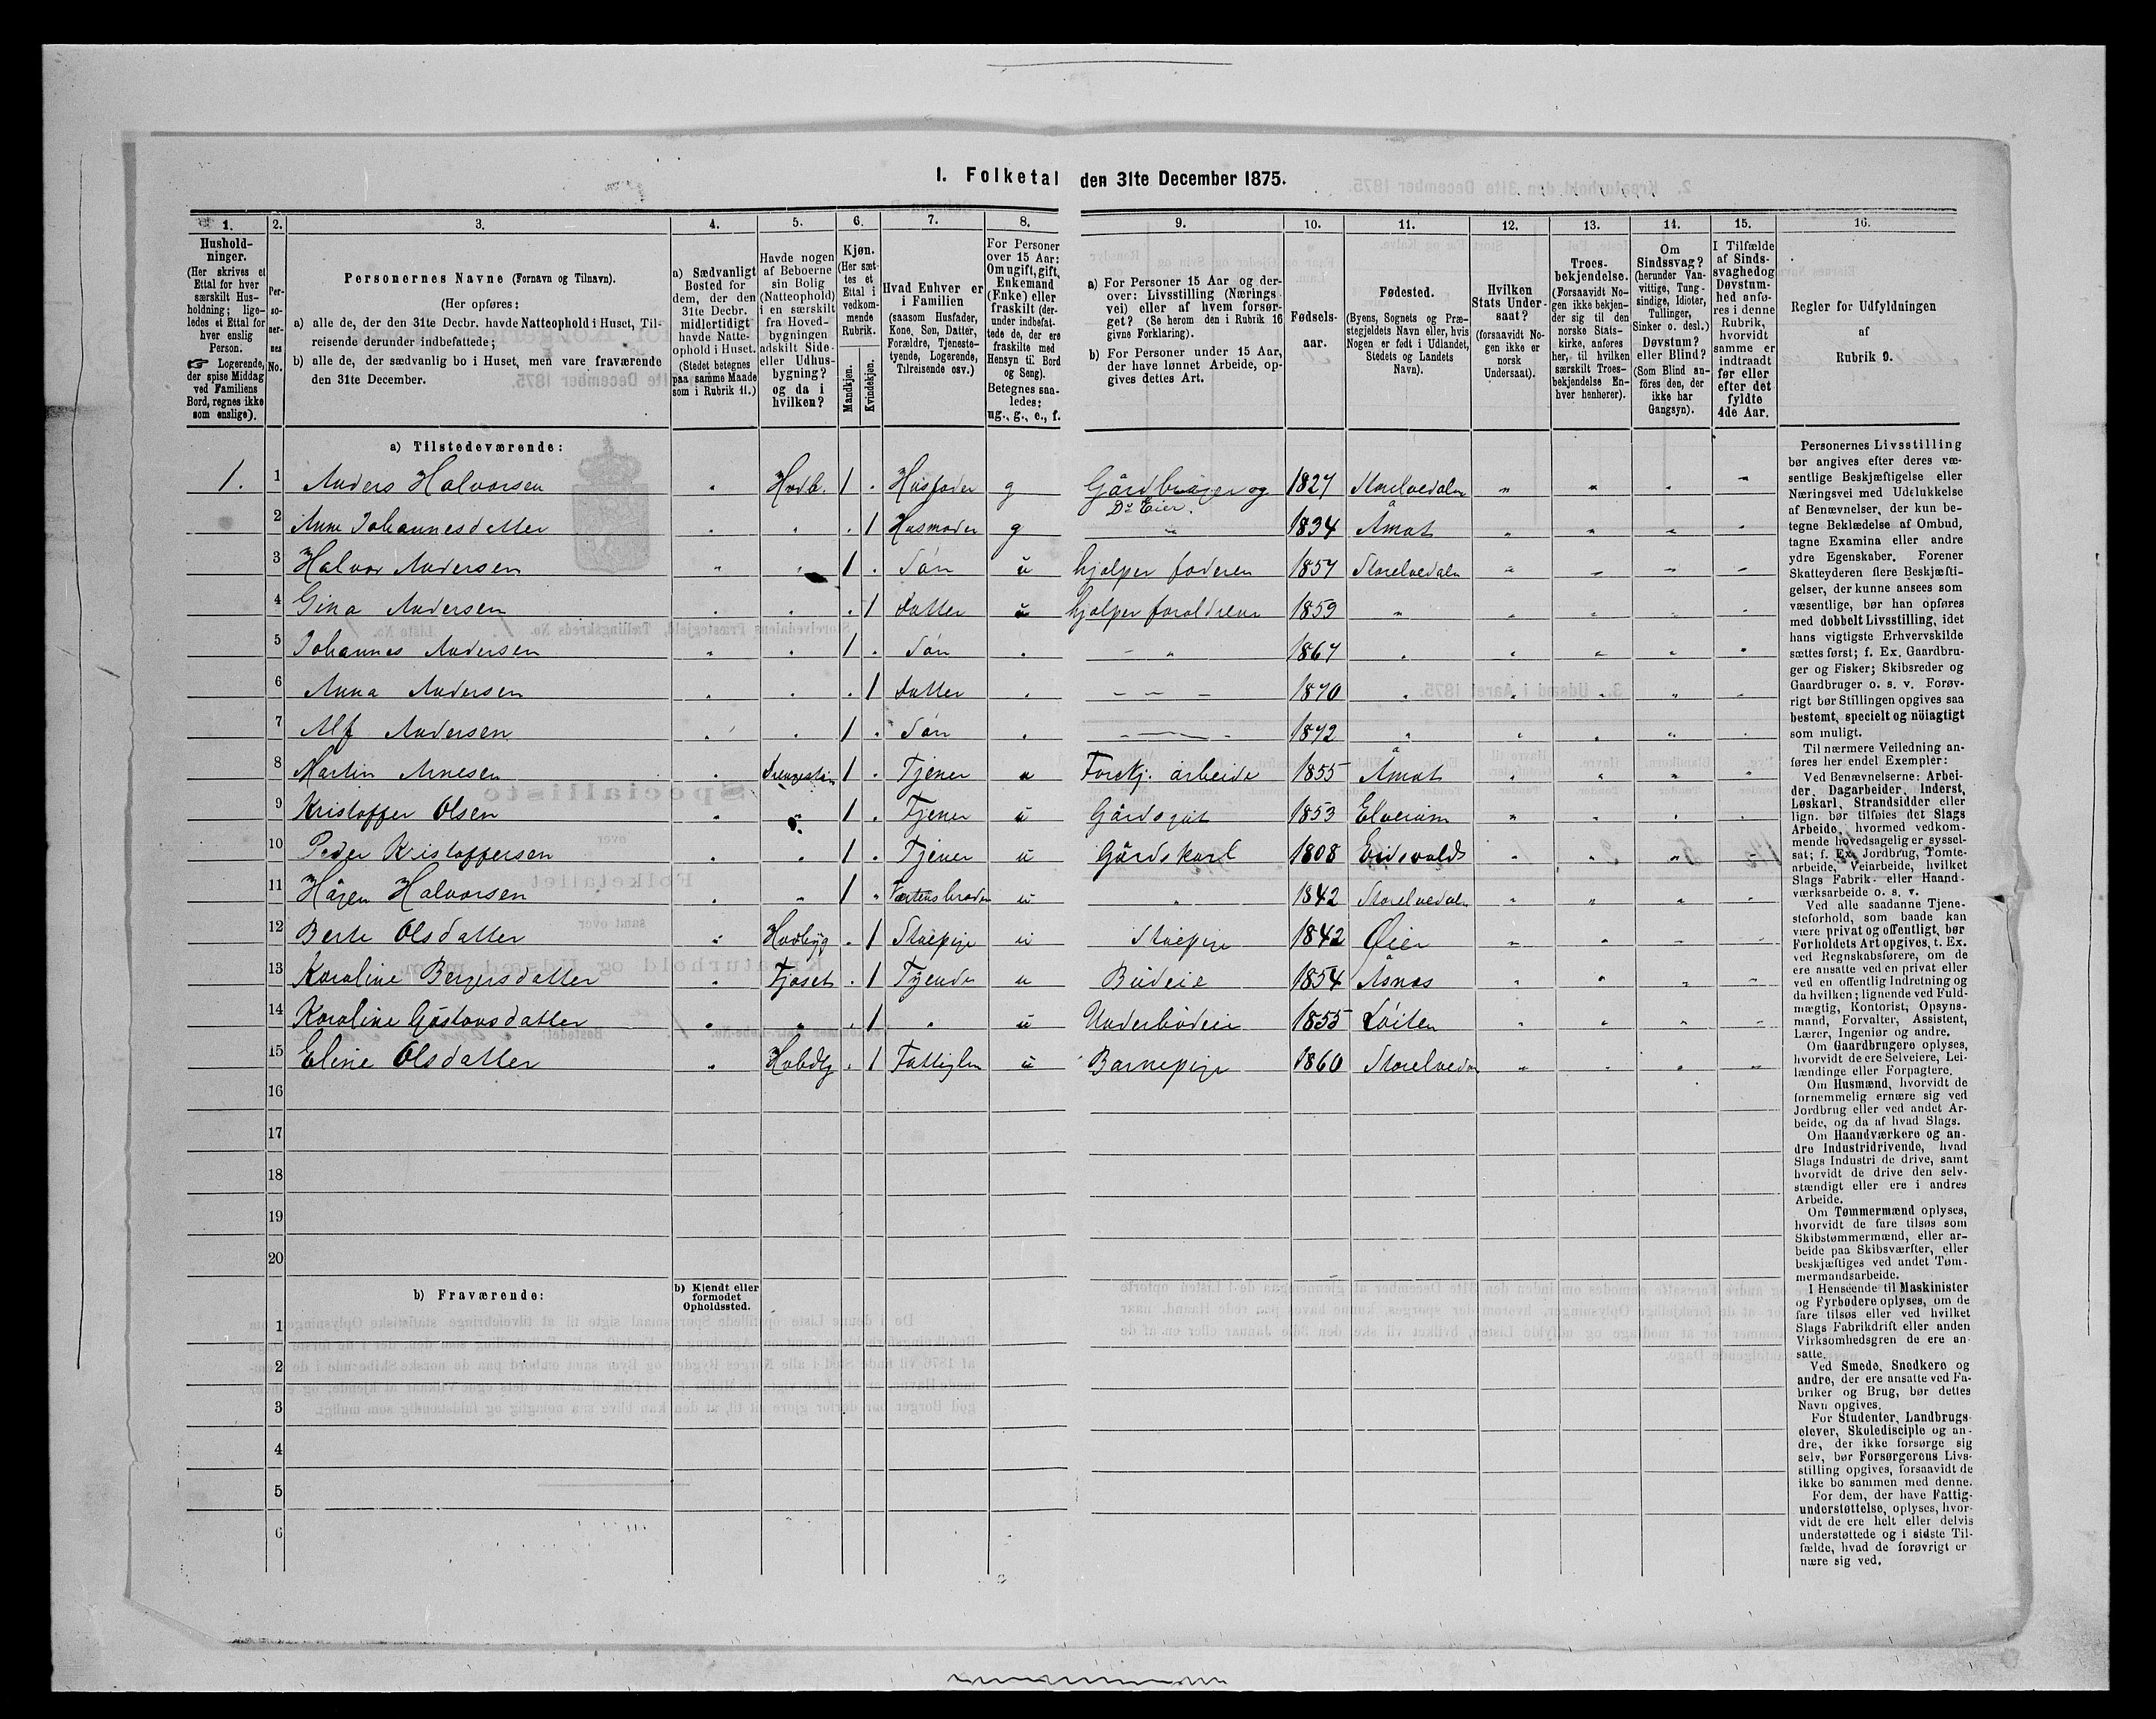 I. Folketal den 31te December 1875.
1. 2. 3. 4. 5. 6. 7. 8. 9. 10. 11. 12. 13. 14. 15. 16.
Hushold-
ninger.
(Her skrives et
Ettal for hver
særskilt Hus-
holdning; lige-
ledes et Ettal for
hver enslig
Person.
☞ Logerende,
der spise Middag
ved Familiens
Bord, regnes ikke
som enslige).
Per-
so-
ner-
nes
No.
Personernes Navne (Fornavn og Tilnavn).
(Her opføres:
a) alle de, der den 31te Decbr. havde Natteophold i Huset, Til-
reisende derunder indbefattede;
b) alle de, der sædvanlig bo i Huset, men vare fraværende
den 31te December.
a) Sædvanligt
Bosted for
dem, der den
31te Decbr.
midlertidigt
havde Natte-
ophold i Huset.
(Stedet betegnes
paa samme Maade
som i Rubrik 11.)
Havde nogen
af Beboerne
sin Bolig
(Natteophold)
i en særskilt
fra Hoved-
bygningen
adskilt Side-
eller Udhus-
bygning?
og da i
hvilken?
Kjøn.
(Her sæt-
tes et
Ettal i
vedkom-
mende
Rubrik.
Mandkjøn.
Kvindekjøn.
Hvad Enhver er
i Familien
(saasom Husfader,
Kone, Søn, Datter,
Forældre, Tjeneste-
tyende, Logerende,
Tilreisende osv.)
For Personer
over 15 Aar:
Om ugift, gift,
Enkemand
(Enke) eller
fraskilt (der-
under indbefat-
tede de, der ere
fraskilte med
Hensyn til Bord
og Seng).
Betegnes saa-
ledes:
ug., g., e., f.
a) For Personer 15 Aar og der-
over: Livsstilling (Nærings
vei) eller af hvem forsør-
get? (Se herom den i Rubrik 16
givne Forklaring).
b) For Personer under 15 Aar,
der have lønnet Arbeide, op-
gives dettes Art.
Fødsels-
aar.
Fødested.
(Byens, Sognets og Præ-
stegjeldets Navn eller, hvis
Nogen er født i Udlandet,
Stedets og Landets
Navn).
Hvilken
Stats Under-
saat?
(forsaavidt No-
gen ikke er
norsk
Undersaat).
Troes-
bekjendelse.
(Forsaavidt No-
gen ikke bekjen-
der sig til den
norske Stats-
kirke, anføres
her, til hvilken
særskilt Troes-
bekjendelse En-
hver henhører).
Om
Sindssvag?
(herunder Van-
vittige, Tung-
sindige, Idioter,
Tullinger,
Sinker o. desl.)
Døvstum?
eller Blind?
(Som Blind an-
føres den, der
ikke har
Gangsyn).
I Tilfælde
af Sinds-
svaghed og
Døvstum-
hed anfø-
res i denne
Rubrik,
hvorvidt
samme er
indtraadt
før eller
efter det
fyldte
4de Aar.
Regler for Udfyldningen
af
Rubrik 9.
a) Tilstedeværende:
1. 1 Anders Halvorsen Hvdb. 1 Husfader g Gårdbruger og D<sup>o</sup> Eier. 1827 Storelvedalen
2 Anne Johannesdatter 1 Husmoder g 1834 Åmot
3 Halvor Andersen 1 Søn u hjælper faderen 1857 Storelvedalen
4 Gina Andersen 1 Datter u hjælper foraldrene 1859
5 Johannes Andersen 1 Søn 1867
6 Anna Andersen 1 Datter 1870
7 Alf Andersen 1 Søn 1872
8 Martin Arnesen 1 Tjener u Forskj. arbeide 1855 Åmot
9 Kristoffer Olsen 1 Tjener u Gårdsgut 1853 Elverum
10 Peder Kristoffersen 1 Tjener u Gårdskarl 1808 Eidsvold
11 Håjen Halvorsen 1 u 1842 Storelvedalen
12 Berte Olsdatter Hovbyg 1 Stuepige u Stuepige 1842 Øier
13 Karoline Bergersdatter Fjøset 1 Tyende u Budeie 1854 Åsnæs
14 Karoline Gåstavsdatter 1 u Underbudeie 1855 Løiten
15 Eline Olsdatter 1 u Barnepige 1860 Storelvedal
16
17
18
19
20
b) Fraværende:
b) Kjendt eller
formodet
Opholdssted.
1
2
3
4
5
6
Personernes Livsstilling
bør angives efter deres væ-
sentlige Beskjæftigelse eller
Næringsvei med Udelukkelse
af Benævnelser, der kun be-
tegne Beklædelse af Ombud,
tagne Examina eller andre
ydre Egenskaber. Forener
Skatteyderen flere Beskjæfti-
gelser, der kunne ansees som
væsentlige, bør han opføres
med dobbelt Livsstilling, idet
hans vigtigste Erhvervskilde
sættes først; f. Ex. Gaardbru-
ger og Fisker; Skibsreder og
Gaardbruger o. s. v. Forøv-
rigt bør Stillingen opgives saa
bestemt, specielt og nöiagtigt
som muligt.
Til nærmere Veiledning an-
føres her endel Exempler:
Ved Benævnelserne: Arbei-
der, Dagarbeider, Inderst,
Løskarl, Strandsidder eller
lign. bør tilføies det Slags
Arbeide, hvormed vedkom-
mende hovedsagelig er syssel-
sat; f. Ex. Jordbrug, Tomte-
arbeide, Veiarbeide, hvilket
Slags Fabrik- eller Haand-
værksarbeide o. s. v.
Ved alle saadanne Tjene-
steforhold, som baade kan
være privat og offentligt, bør
Forholdets Art opgives, t. Ex.
ved Regnskabsførere, om de
ere ansatte ved en privat eller
ved en offentlig Indretning og
da hvilken; lignende ved Fuld-
mægtig, Kontorist, Opsyns-
mand, Forvalter, Assistent,
Lærer, Ingeniør og andre.
Om Gaardbrugere oplyses,
hvorvidt de ere Selveiere, Lei-
lændinge eller Forpagtere.
Om Husmænd, hvorvidt de
fornemmelig ernære sig ved
Jordbrug eller ved andet Ar-
beide, og da af hvad Slags.
Om Haandværkere og an-
dre Industridrivende, hvad
Slags Industri de drive, samt
hvorvidt de drive den selv-
stændigt eller ere i andres
Arbeide.
Om Tømmermænd oplyses,
hvorvidt de fare tilsøs som
Skibstømmermænd, eller ar-
beide paa Skibsværfter, eller
beskjæftiges ved andet Tøm-
mermandsarbeide.
I Henseende til Maskinister
og Fyrbødere oplyses, om de
fare tilsøs eller ved hvilket
Slags Fabrikdrift eller anden
Virksomhedsgren de ere an-
satte.
Ved Smede, Snedkere og
andre, der ere ansatte ved Fa-
briker og Brug, bør dettes
Navn opgives.
For Studenter, Landbrugs-
elever, Skoledisciple og an-
dre, der ikke forsørge sig
selv, bør Forsørgerens Livs-
stilling opgives, forsaavidt de
ikke bo sammen med denne.
For dem, der have Fattig-
understøttelse, oplyses, hvor-
vidt de ere helt eller delvis
understøttede og i sidste Til-
fælde, hvad de forøvrigt er
nære sig ved.